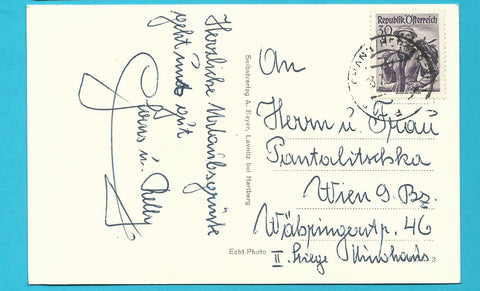 Herzliche Urlaubsgrüße
geht uns gut
Hans u.
Selbstverlag A. Exyer, Lavnitz bei Hartberg
Echt Photo
3
Republik Österreich
30
An
Herrn u. Frau
Pantalitschka
Wien 9. Bz.
Währingerstr. 46
II. Stiege Hinterhaus